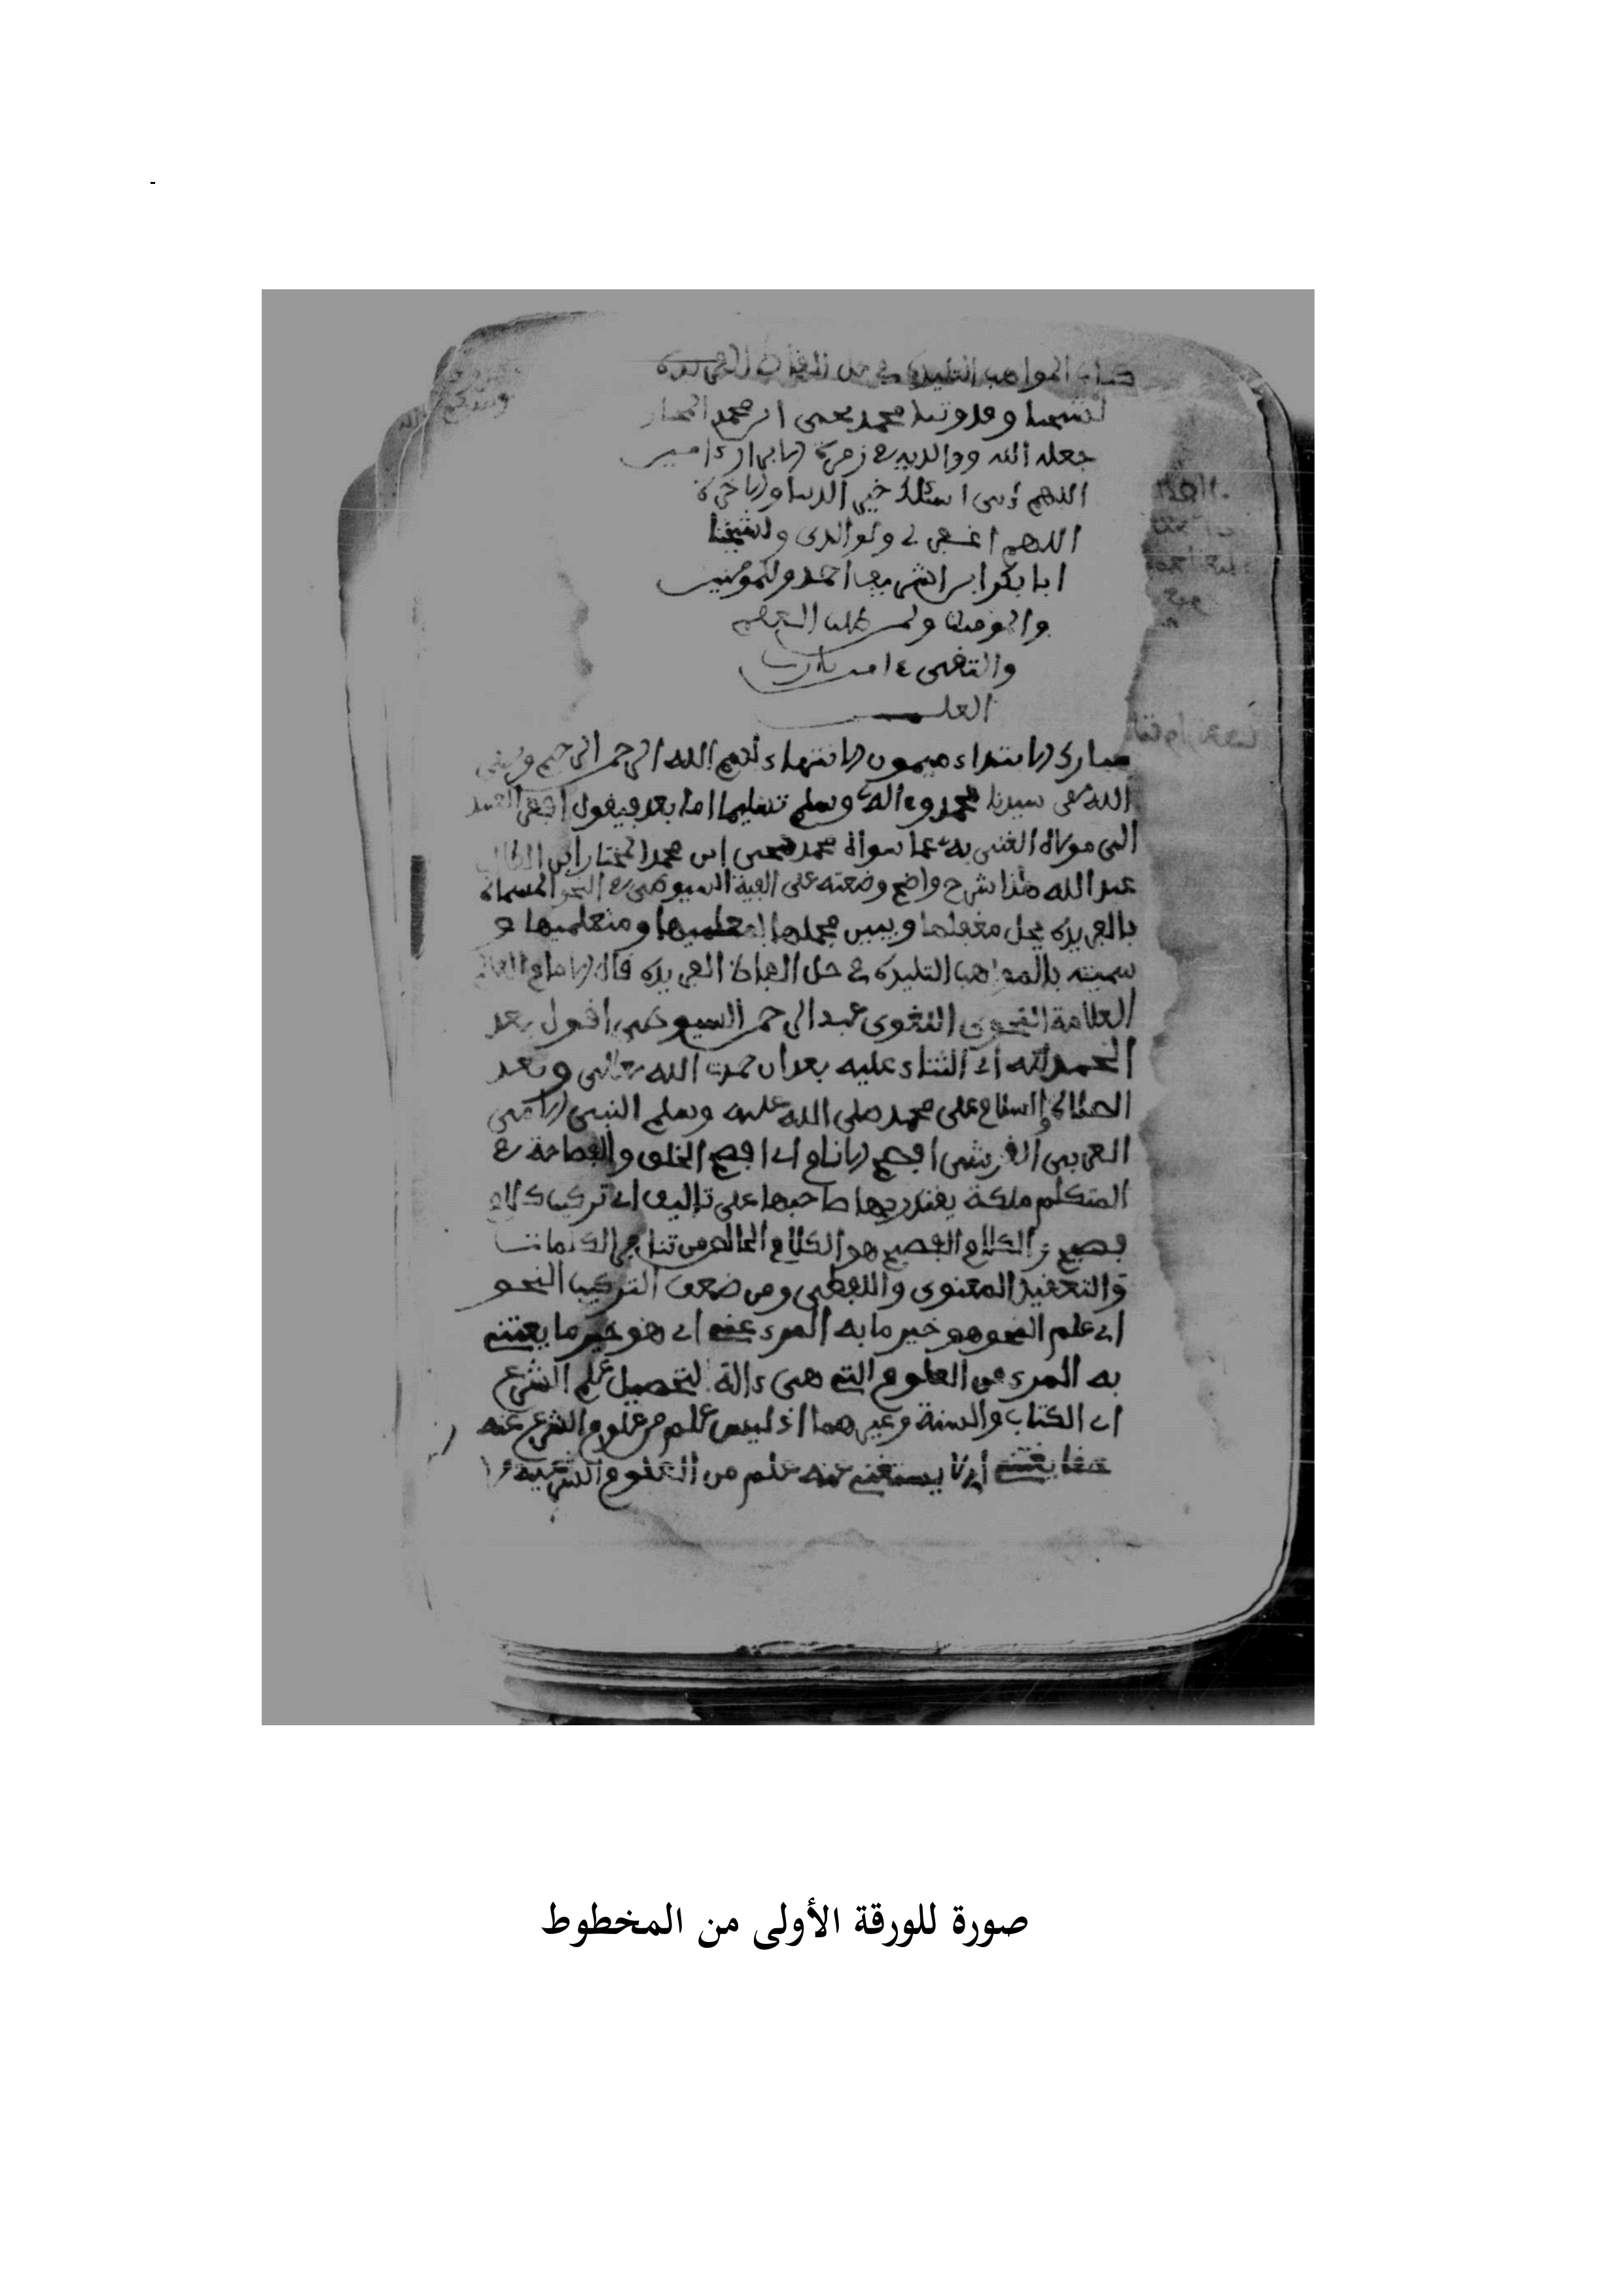 -
كتاب المواهب التليدة في حل الفاظ الفريدة
لشيخنا وقدوتنا محمد يحيى ابن محمد المختار
جعله الله ووالديه في زمرة الابرار ءامين
اللهم إني اسئلك خير الدنيا والاخرة
اللهم اغفر لي ولوالدي ولشيخنا
ابا بكر ابن الشريف احمد وللمومنين
والمومنات ولمن طلب العلم
والتقى ءامين يارب
العلمين
مبارك الابتداء ميمون الانتهاء بسم الله الرحمن الرحيم وصلى
الله على سيدنا محمد وءاله وسلم تسليما اما بعد فيقول افقر العبيد
الى مولاه الغني به عما سواه محمد يحيى ابن محمد المختار ابن الطالب
عبد الله هذا شرح واضح وضعته على الفية السيوطي في النحو المسماة
بالفريدة يحل مقفلها ويبين مجملها لمعلميها ومتعلميها و
سميته بالمواهب التليدة في حل الفاظ الفريدة قال الامام العالم
العلامة النحوي اللغوي عبد الرحمن السيوطي اقول بعد
الحمد لله اي الثناء عليه بعد ان حمدت الله تعالى وبعد
الصلاة والسلام على محمد صلى الله عليه وسلم النبي الامي
العربي القرشي افصح الانام اي افصح الخلق والفصاحة في
المتكلم ملكة يقتدر بها صاحبها على تاليف اي تركيب كلام
فصيح والكلام الفصيح هو الكلام الخالص من تنافر الكلمات
والتعقيد المعنوي واللفظي ومن ضعف التركيب النحو
اي علم النحو هو خير ما به المرء عني اي هو خير ما يعتني
به المرء من العلوم التي هي ءالة لتحصيل علم الشرع
اي الكتاب والسنة وغيرهما اذ ليس علم من علوم الشرع عنه
حقا يغتني اي لا يستغني عنه علم من العلوم الشرعية
صورة للورقة الأولى من المخطوط